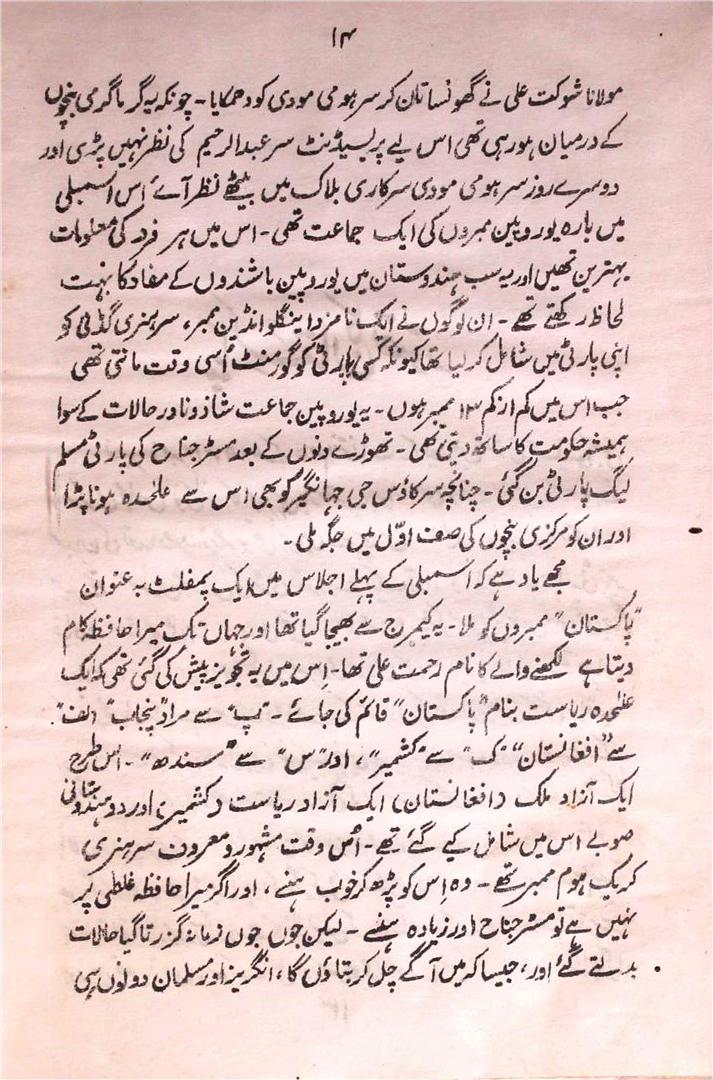 ۱۴
مولانا شوکت علی نے گھونسا تان کر سر ہومی مودی کو دھمکایا۔ چونکہ یہ گرما گرمی بنچوں
کے درمیان ہو رہی تھی اس لیے پریسیڈنٹ سر عبدالرحیم کی نظر نہیں پڑی اور
دوسرے روز سر ہومی مودی سرکاری بلاک میں بیٹھے نظر آئے اس اسمبلی
میں بارہ یوروپین ممبروں کی ایک جماعت تھی۔ اس میں ہر فرد کی معلومات
بہترین تھیں اور یہ سب ہندوستان میں یوروپین باشندوں کے مفاد کا بہت
لحاظ رکھتے تھے۔ ان لوگوں نے ایک نامزد اینگلو انڈین ممبر، سر ہنری گڈنی کو
اپنی پارٹی میں شامل کر لیا تھا کیونکہ کسی پارٹی کو گورمنٹ اُسی وقت مانتی تھی
جب اس میں کم از کم ۱۳ ممبر ہوں۔ یہ یوروپین جماعت شاذ و نادر حالات کے سوا
ہمیشہ حکومت کا ساتھ دیتی تھی۔ تھوڑے دنوں کے بعد مسٹر جناح کی پارٹی مسلم
لیگ پارٹی بن گئی۔ چنانچہ سر کاؤس جی جہانگیر کو بھی اس سے علٰحدہ ہونا پڑا
اور ان کو مرکزی بنچوں کی صف اوّل میں جگہ ملی۔
مجھے یاد ہے کہ اسمبلی کے پہلے اجلاس میں ایک پمفلٹ بہ عنوان
"پاکستان" ممبروں کو ملا۔ یہ کیمبرج سے بھیجا گیا تھا اور جہاں تک میرا حافظہ کام
دیتا ہے لکھنے والے کا نام رحمت علی تھا۔ اِس میں یہ تجویز پیش کی گئی تھی کہ ایک
علٰحدہ ریاست بنام "پاکستان" قائم کی جائے۔ "پ" سے مراد "پنجاب" "الف"
سے "افغانستان" "ک" سے "کشمیر"، اور "س" سے "سندھ"۔ اس طرح
ایک آزاد ملک (افغانستان) ایک آزاد ریاست (کشمیر) اور دو ہندوستانی
صوبے اس میں شامل کیے گئے تھے۔ اُس وقت مشہور و معروف سر ہنری
کریک ہوم ممبر تھے۔ وہ اِس کو پڑھ کر خوب ہنسے، اور اگر میرا حافظہ غلطی پر
نہیں ہے تو مسٹر جناح اور زیادہ ہنسے۔ لیکن جوں جوں زمانہ گزرتا گیا حالات
بدلتے گئے اور، جیسا کہ میں آگے چل کر بتاؤں گا، انگریز اور مسلمان دونوں ہی